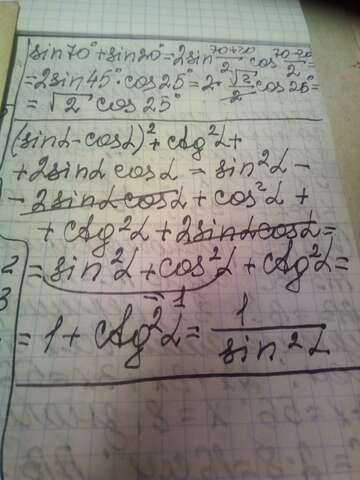 sin70°+sin20°=2sin (70+20)/2 cos (70-20)/2=
=2sin45°·cos25°=2·√2/2·cos25°=
=√2 cos25°
(sinα-cosα)²+ctg²α+
+2sinα cosα = sin²α-
-2sinα cosα+cos²α+
+ctg²α+2sinα cosα=
=sin²α+cos²α+ctg²α=
=1
=1+ctg²α=1/sin²α
2
3